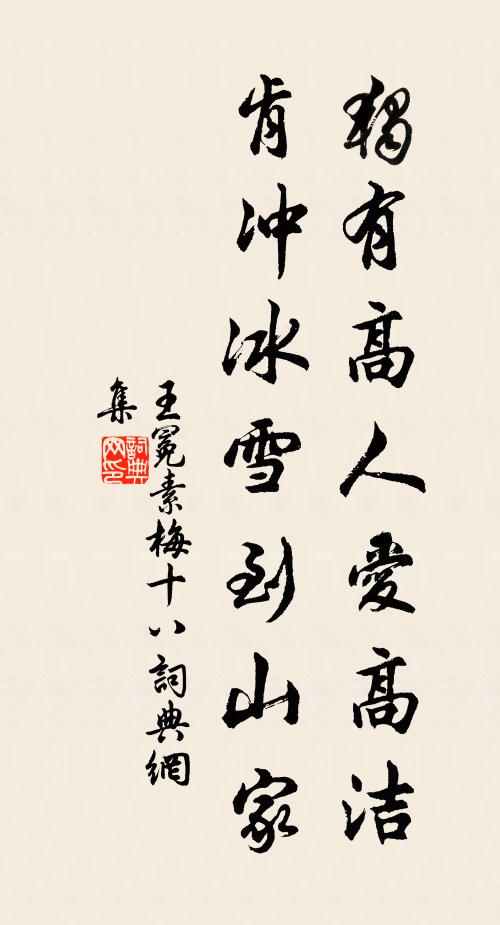 獨有高人愛高洁
肯冲冰雪到山家
王冕素梅十八詞典網
集
詞典
网印